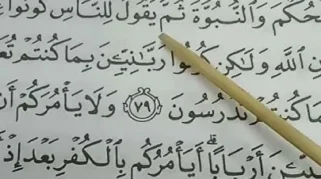 لحكم والنبوة ثم يقول للناس كونوا
ن الله ولكن كونوا ربنين بما كنتم تع
ما كنتم تدرسون ٧٩ ولا يأمركم أن
ين أربابا أيأمركم بالكفر بعد إذ